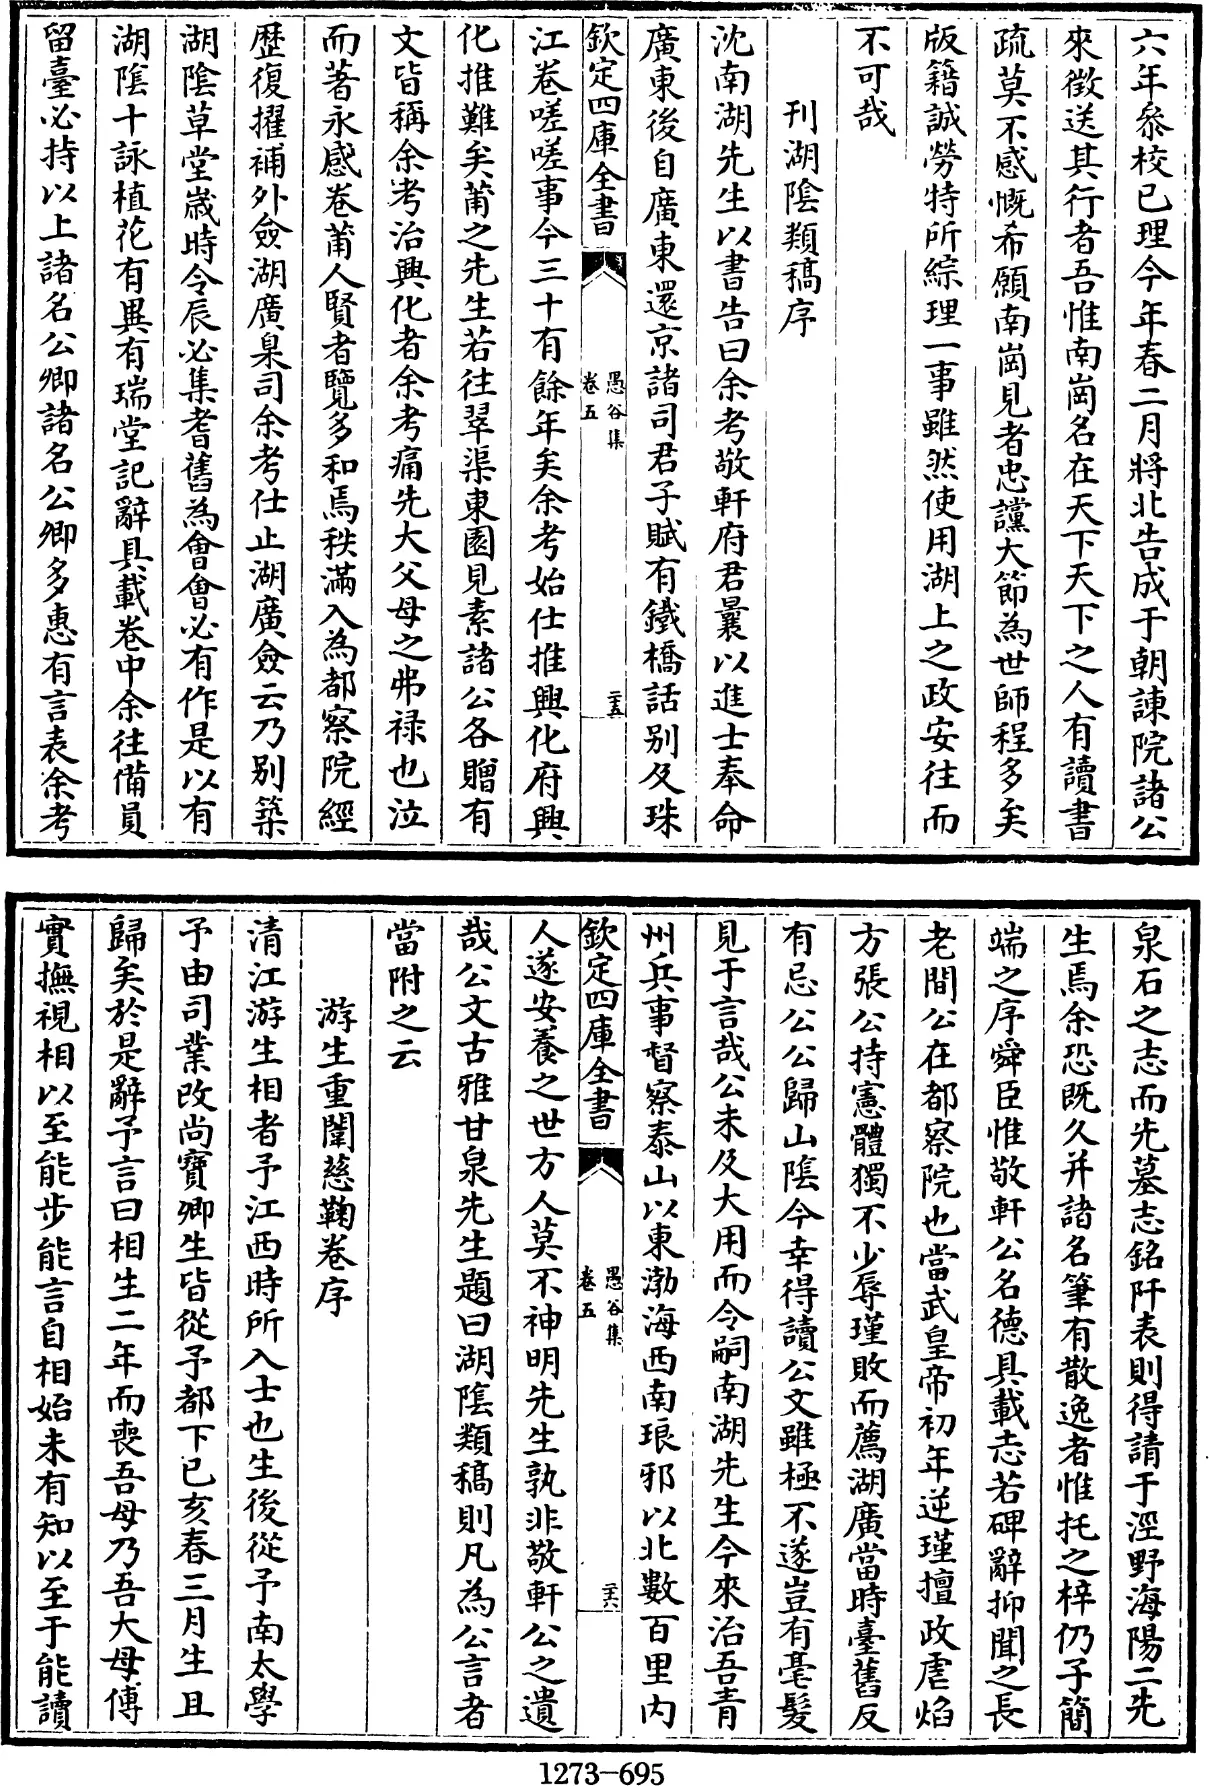 六年叅校已理今年春二月將北告成于朝諫院諸公
來徵送其行者吾惟南崗名在天下天下之人有讀書
疏莫不感慨希願南崗見者忠讜大節為世師程多矣
版籍誠勞特所綜理一事雖然使用湖上之政安往而
不可哉
刊湖陰類稿序
沈南湖先生以書告曰余考敬軒府君曩以進士奉命
廣東後自廣東還京諸司君子賦有鐵橋話别及珠
欽定四庫全書
愚谷集
卷五
二十五
江卷嗟嗟事今三十有餘年矣余考始仕推興化府興
化推難矣莆之先生若往翠渠東園見素諸公各贈有
文皆稱余考治興化者余考痛先大父母之弗禄也泣
而著永感卷莆人賢者覽多和焉秩滿入為都察院經
歴復擢補外僉湖廣臬司余考仕止湖廣僉云乃别築
湖陰草堂嵗時令辰必集耆舊為㑹㑹必有作是以有
湖陰十詠植花有異有瑞堂記辭具載卷中余往備員
留臺必持以上諸名公卿諸名公卿多惠有言表余考
泉石之志而先墓志銘阡表則得請于涇野海陽二先
生焉余恐既久并諸名筆有散逸者惟托之梓仍子簡
端之序舜臣惟敬軒公名德具載志若碑辭抑聞之長
老間公在都察院也當武皇帝初年逆瑾擅政虐焰
方張公持憲體獨不少辱瑾敗而薦湖廣當時臺舊反
有忌公公歸山陰今幸得讀公文雖極不遂豈有毫髮
見于言哉公未及大用而令嗣南湖先生今來治吾青
州兵事督察泰山以東渤海西南琅邪以北數百里内
欽定四庫全書
愚谷集
卷五
二十六
人遂安養之世方人莫不神明先生孰非敬軒公之遺
哉公文古雅甘泉先生題曰湖陰類稿則凡為公言者
當附之云
游生重闈慈鞠卷序
清江游生相者予江西時所入士也生後從予南太學
予由司業改尚寶卿生皆從予都下已亥春三月生且
歸矣於是辭予言曰相生二年而喪吾母乃吾大母傅
實撫視相以至能步能言自相始未有知以至于能讀
1273-695